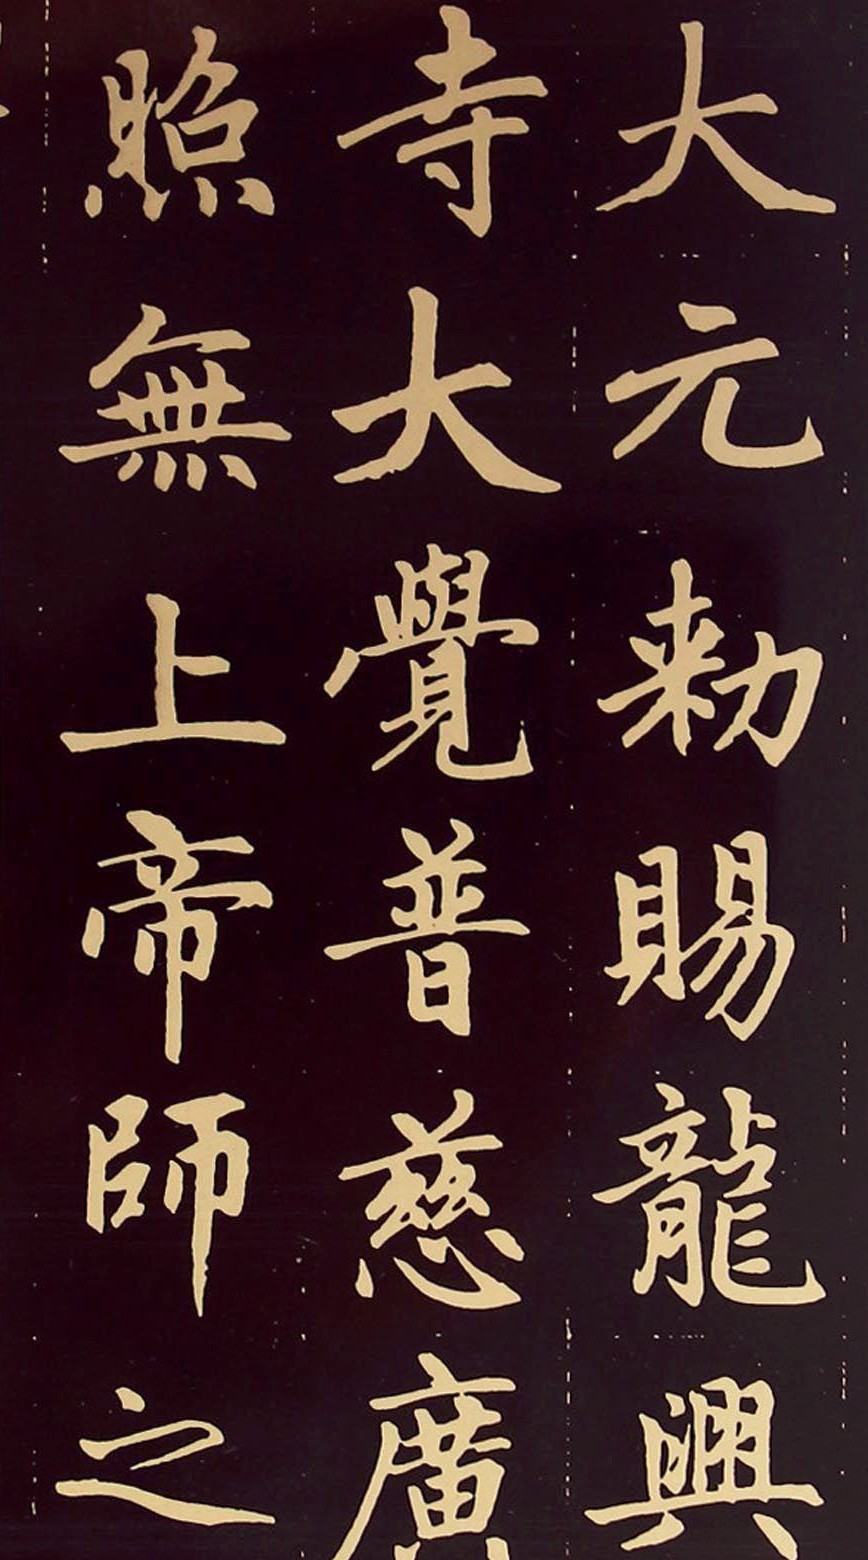 大元勑賜龍興
寺大覺普慈廣
照無上帝師之